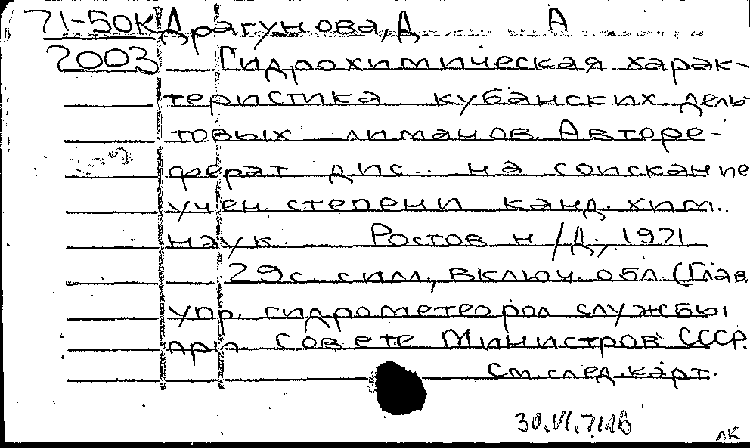 71-50к Драгунова, Д А
2003 Гидрохимическая харак-
теристика кубанских дель
товых лиманов Авторе-
ферат дис. на соискание
учен степени канд. хим.
наук Ростов н/Д, 1971
29с с ил, включ. обл. (Глав
упр. гидрометеорол службы
при Совете Министров СССР
См. след. карт.
30.VI.71
лк